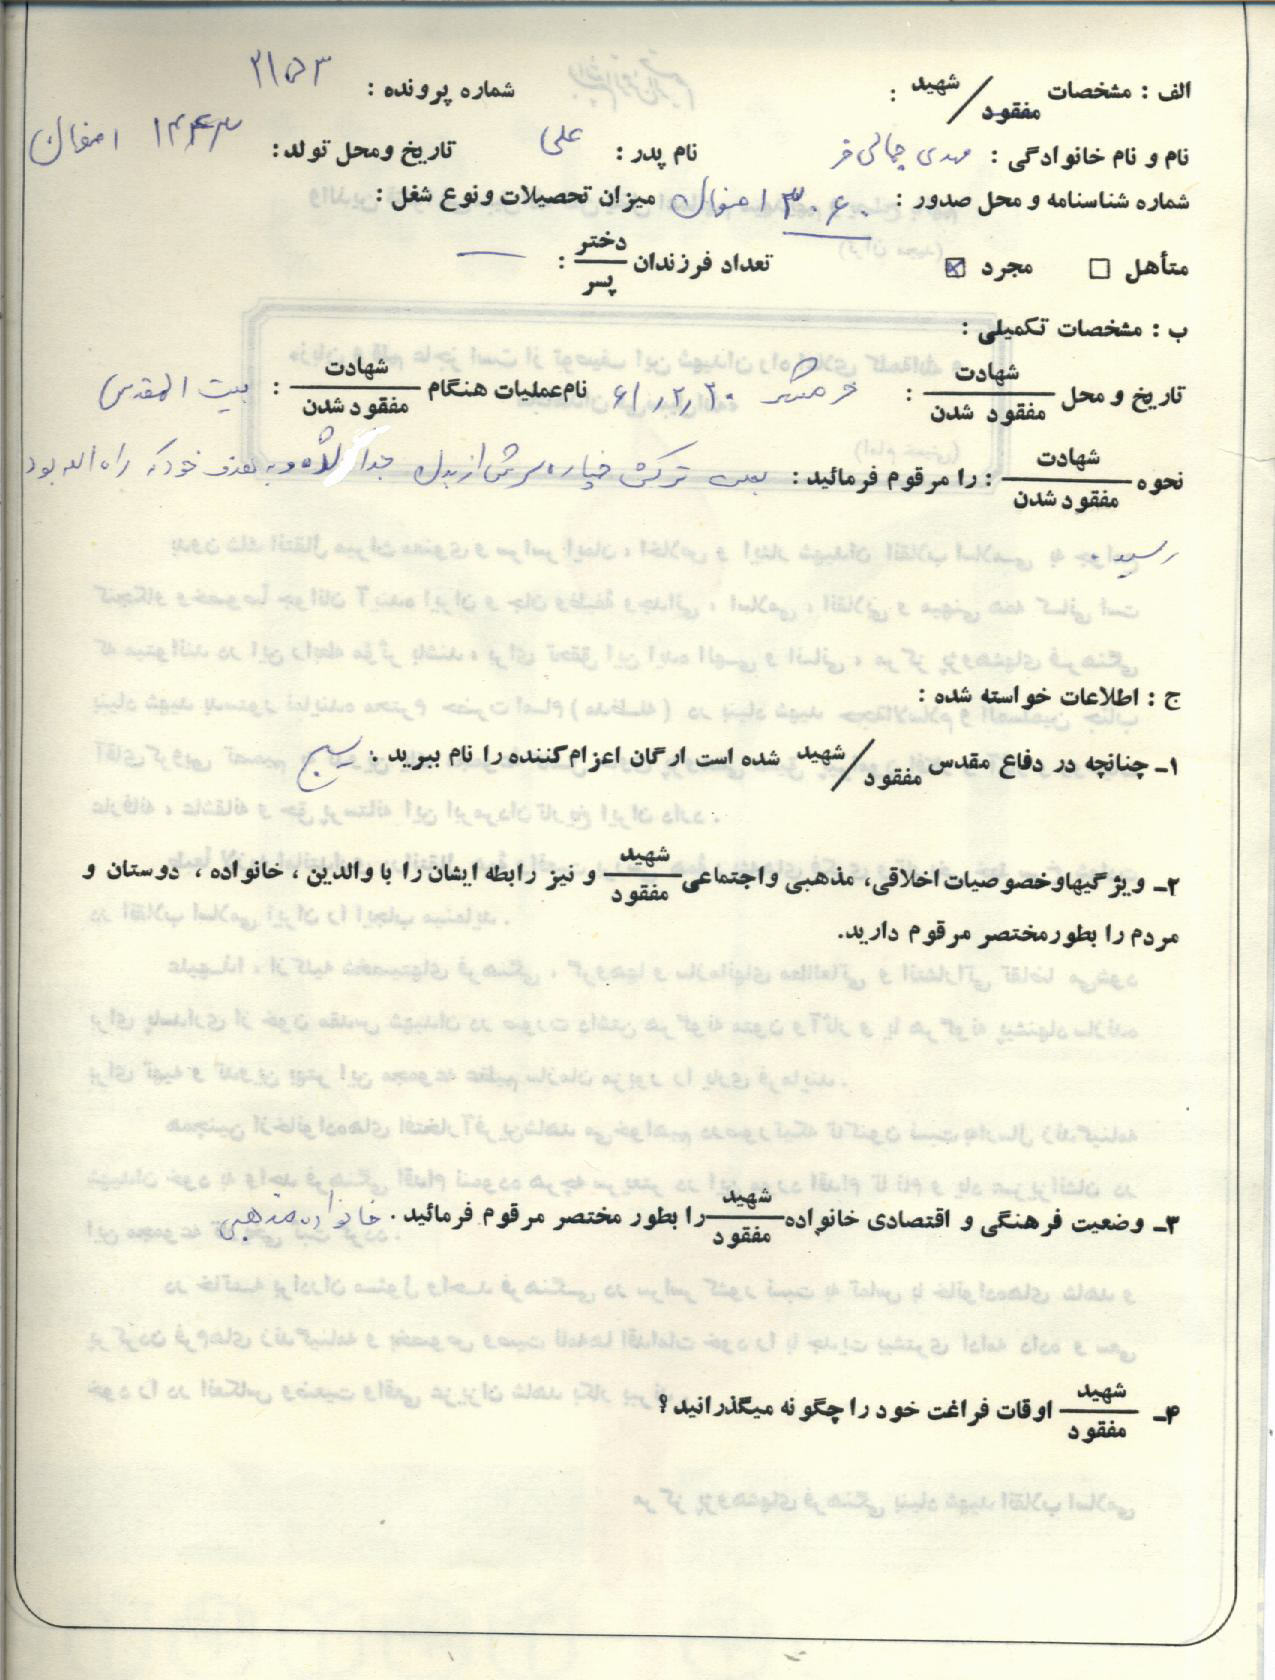 الف : مشخصات شهید / مفقود :
شماره پرونده : ۳۱۵۳
نام و نام خانوادگی : مهدی جمالی فر نام پدر : علی تاریخ ومحل تولد : اصفهان
شماره شناسنامه و محل صدور : ۳۰۶۰ اصفهان میزان تحصیلات ونوع شغل :
متأهل ☐ مجرد ☒ تعداد فرزندان دختر / پسر : —
ب : مشخصات تکمیلی :
تاریخ و محل شهادت / مفقود شدن : خرمشهر ۶۱٫۲٫۲۰ نام عملیات هنگام شهادت / مفقود شدن : بیت المقدس
نحوه شهادت / مفقود شدن : را مرقوم فرمائید : ترکش خپاره سرش از بدن جدا شده و به هدف خود که راه الله بود
رسید .
ج : اطلاعات خواسته شده :
۱ـ چنانچه در دفاع مقدس شهید / مفقود شده است ارگان اعزام کننده را نام ببرید . بسیج
۲ـ ویژگیهاوخصوصیات اخلاقی، مذهبی واجتماعی شهید / مفقود و نیز رابطه ایشان را با والدین ، خانواده ، دوستان و
مردم را بطورمختصر مرقوم دارید.
۳ـ وضعیت فرهنگی و اقتصادی خانواده شهید / مفقود را بطور مختصر مرقوم فرمائید . خانواده مذهبی
۴ـ شهید / مفقود اوقات فراغت خود را چگونه میگذرانید ؟